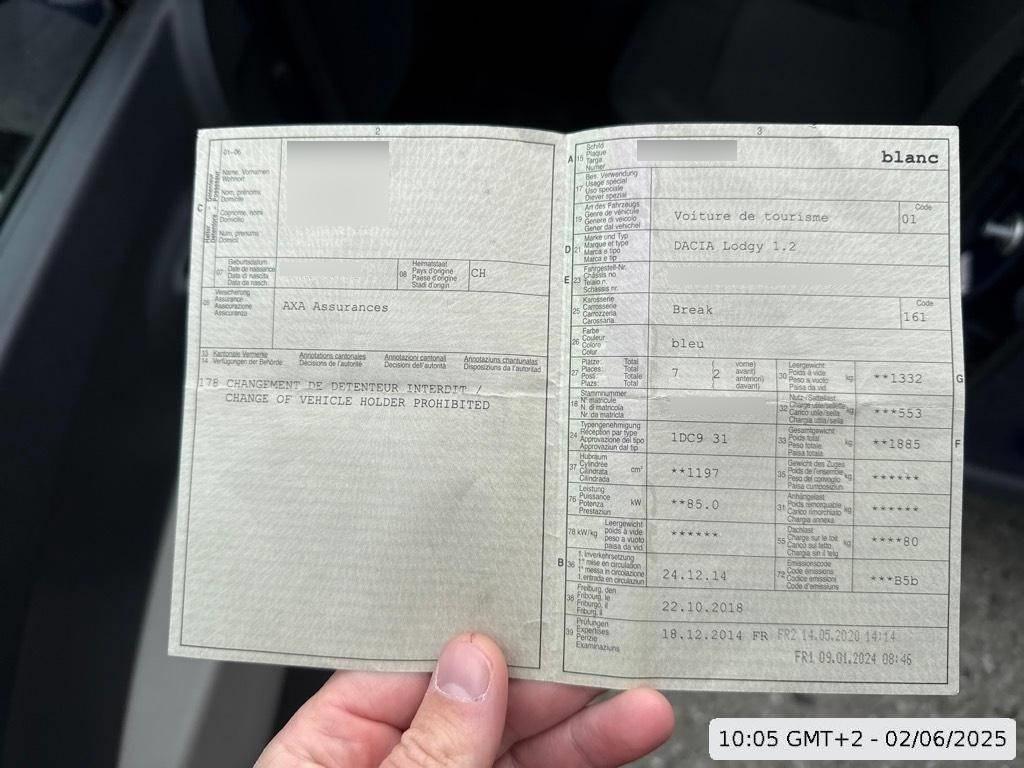 2
01-06
C
Halter Détenteur Detentore Possessur
Name, Vornamen
Wohnort
Nom, prénoms
Domicile
Cognome, nomi
Domicilio
Num, prenums
Domicil
07
Geburtsdatum
Date de naissance
Data di nascita
Data da nasch.
08
Heimatstaat
Pays d'origine
Paese d'origine
Stadi d'origin
CH
09
Versicherung
Assurance
Assicurazione
Assicuranza
AXA Assurances
13 Kantonale Vermerke
14 Verfügungen der Behörde
Annotations cantonales
Décisions de l'autorité
Annotazioni cantonali
Decisioni dell'autorità
Annotaziuns chantunalas
Disposiziuns da l'autoritad
178 CHANGEMENT DE DETENTEUR INTERDIT /
CHANGE OF VEHICLE HOLDER PROHIBITED
3
A 15
Schild
Plaque
Targa
Numer
blanc
17
Bes. Verwendung
Usage spécial
Uso speciale
Diever spezial
19
Art des Fahrzeugs
Genre de véhicule
Genere di veicolo
Gener dal vehichel
Voiture de tourisme
Code
01
D 21
Marke und Typ
Marque et type
Marca e tipo
Marca e tip
DACIA Lodgy 1.2
E 23
Fahrgestell-Nr.
Châssis no
Telaio n.
Schassis nr.
25
Karosserie
Carrosserie
Carrozzeria
Carossaria
Break
Code
161
26
Farbe
Couleur
Colore
Colur
bleu
27
Plätze: Total
Places: Total
Posti: Totale
Plazs: Total
7
(2
vorne)
avant)
anteriori)
davant)
30
Leergewicht
Poids à vide
Peso a vuoto
Paisa da vid
kg
**1332
G
18
Stammnummer
N° matricule
N. di matricola
Nr. da matricla
32
Nutz-/Sattellast
Charge utile/sellette
Carico utile/sella
Chargia utila/sella
kg
***553
24
Typengenehmigung
Réception par type
Approvazione del tipo
Approvaziun dal tip
1DC9 31
33
Gesamtgewicht
Poids total
Peso totale
Paisa totala
kg
**1885
F
37
Hubraum
Cylindrée
Cilindrata
Cilindrada
cm³
**1197
35
Gewicht des Zuges
Poids de l'ensemble
Peso del convoglio
Paisa cumposiziun
kg
******
76
Leistung
Puissance
Potenza
Prestaziun
kW
**85.0
31
Anhängelast
Poids remorquable
Carico rimorchiato
Chargia annexa
kg
******
78 kW/kg
Leergewicht
poids à vide
peso a vuoto
paisa da vid
******
55
Dachlast
Charge sur le toit
Carico sul tetto
Chargia sin il tetg
kg
****80
B 36
1. Inverkehrsetzung
1re mise en circulation
1a messa in circolazione
1. entrada en circulaziun
24.12.14
72
Emissionscode
Code émissions
Codice emissioni
Code d'emissiuns
***B5b
38
Freiburg, den
Fribourg, le
Friburgo, il
Friburg, il
22.10.2018
39
Prüfungen
Expertises
Perizie
Examinaziuns
18.12.2014 FR FR2 14.05.2020 14:14
FR1 09.01.2024 08:46
10:05 GMT+2 - 02/06/2025